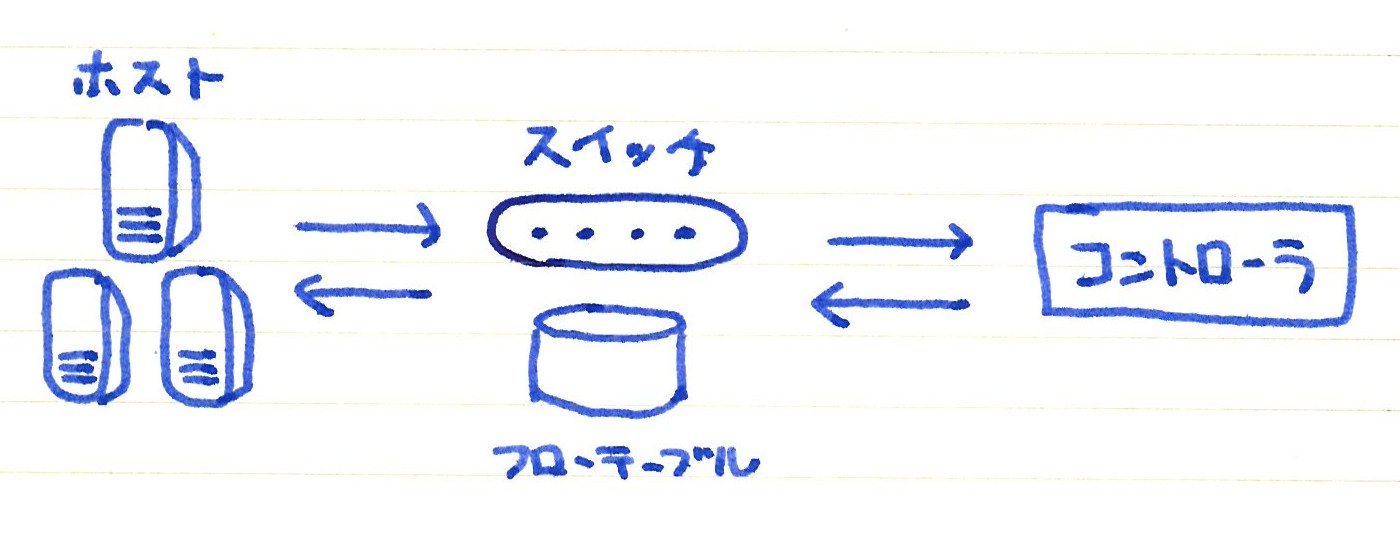 ホスト
スイッチ
コントローラ
フローテーブル